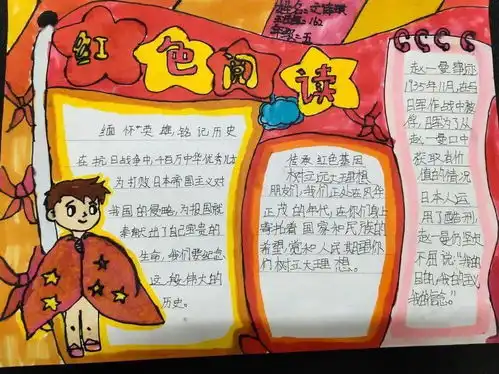 红色阅读
班级:162
年级:五
缅怀英雄铭记历史
在抗日战争中,4百万中华优秀儿女
为打败日本帝国主义对
我国的侵略,为报国献
奉献出了自己宝贵的
生命,我们要纪念
这段伟大的
历史。
传承红色基因
树立远大理想
朋友们,我们正处在风华
正茂的年代,在你们身上
寄托着国家和民族的
希望,党和人民期望你
们树立大理想。
赵一曼
1935年11月,在与
日军作战中被
俘,日军为了从
赵一曼口中
获取有价
值的情况
日本人运
用了酷刑,
赵一曼仍坚决
不屈说:“我的
目的,我的主义
我的信念。”